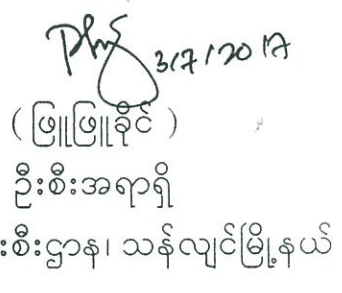 3/7/2017
( ဖြူဖြူခိုင် )
ဦးစီးအရာရှိ
းစီးဌာန၊ သန်လျင်မြို့နယ်